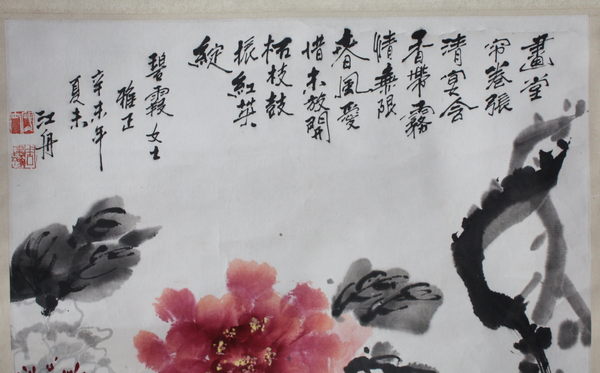 畫堂
帘卷張
清宴含
香帶霧
情無限
春風愛
惜未放開
柘枝鼓
振紅英
綻
碧霞女士
雅正
辛未年
夏末
江舟